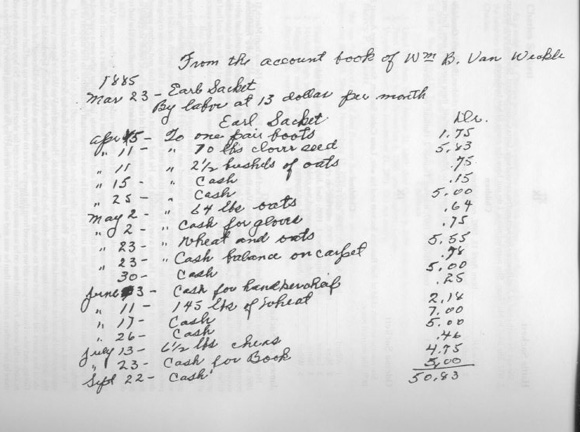 From the account book of Wm B. Van Winkle
1885
Mar 23 - Earl Sacket
By labor at 13 dollar per month
Earl Sacket Dlr.
Apr 5 - To one pair boots 1.75
" 11 - " 70 lbs clover seed 5.83
" 11 " 2 1/2 bushels of oats .75
" 15 - " Cash .15
" 25 - " Cash 5.00
May 2 - " 64 lbs oats .64
" 2 - " Cash for gloves .75
" 23 - " Wheat and oats 5.55
" 23 - " Cash balance on carpet .78
30 - Cash 5.00
June 3 - Cash for handkerchief .25
" 11 - 145 lbs of wheat 2.18
" 17 - Cash 7.00
" 26 - Cash 5.00
July 13 - 6 1/2 lbs .46
" 23 - Cash for Book 4.75
Sept 22 - Cash 5.00
50.83